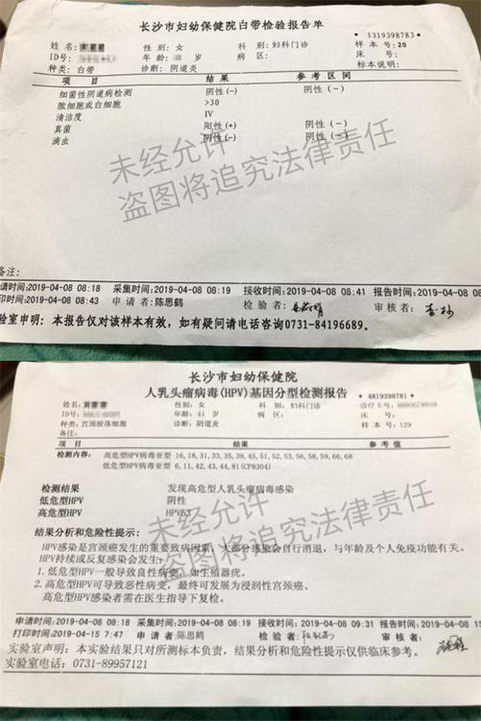 长沙市妇幼保健院白带检验报告单
*1319398783*
姓名: 性别:女 科别:妇科门诊 样本号:20
ID号: 年龄: 岁 病区: 床号:
种类:白带 诊断:阴道炎 标本说明:
项目 结果 参考区间
细菌性阴道病检测 阴性(-) 阴性(-)
脓细胞或白细胞 >30
清洁度 IV
真菌 阳性(+) 阴性(-)
滴虫 阴性(-) 阴性(-)
未经允许
盗图将追究法律责任
备注:
请时间:2019-04-08 08:18 采集时间:2019-04-08 08:19 接收时间:2019-04-08 08:41 报告时间:2019-04-08 08
印时间:2019-04-08 08:43 申请者:陈思鹤 检验者: 审核者:
验室声明:本报告仅对该样本有效,如有疑问请电话咨询0731-84196689.
长沙市妇幼保健院
人乳头瘤病毒(HPV)基因分型检测报告
*4819398781*
姓名: 性别:女 科别:妇科门诊 诊疗卡号:
ID号: 年龄: 岁 病区: 床号:
种类:宫颈脱落细胞 诊断:阴道炎 样本号:129
备注:
项目 结果 参考值
检测内容: 高危型HPV病毒亚型 16,18,31,33,35,39,45,51,52,53,56,58,59,66,68
低危型HPV病毒亚型 6,11,42,43,44,81(CP8304)
检测结果 发现高危型人乳头瘤病毒感染
低危型HPV 阴性
高危型HPV HPV53
未经允许
盗图将追究法律责任
结果分析和危险性提示:
HPV感染是宫颈癌发生的重要致病因素,大部分感染会自行消退,与年龄及个人免疫功能有关。
HPV持续或反复感染会发生:
1.低危型HPV一般导致良性病变,如生殖器疣。
2.高危型HPV可导致恶性病变,最终可发展为浸润性宫颈癌。
高危型HPV感染者需在医生指导下复检。
申请时间:2019-04-08 08:18 采集时间:2019-04-08 08:19 接收时间:2019-04-08 09:31 报告时间:2019-04-08 15
打印时间:2019-04-15 7:47 申请者:陈思鹤 检验者: 审核者:
实验室声明:本实验结果只对所测标本负责,结果分析和危险性提示仅供临床参考。
实验室电话:0731-89957121